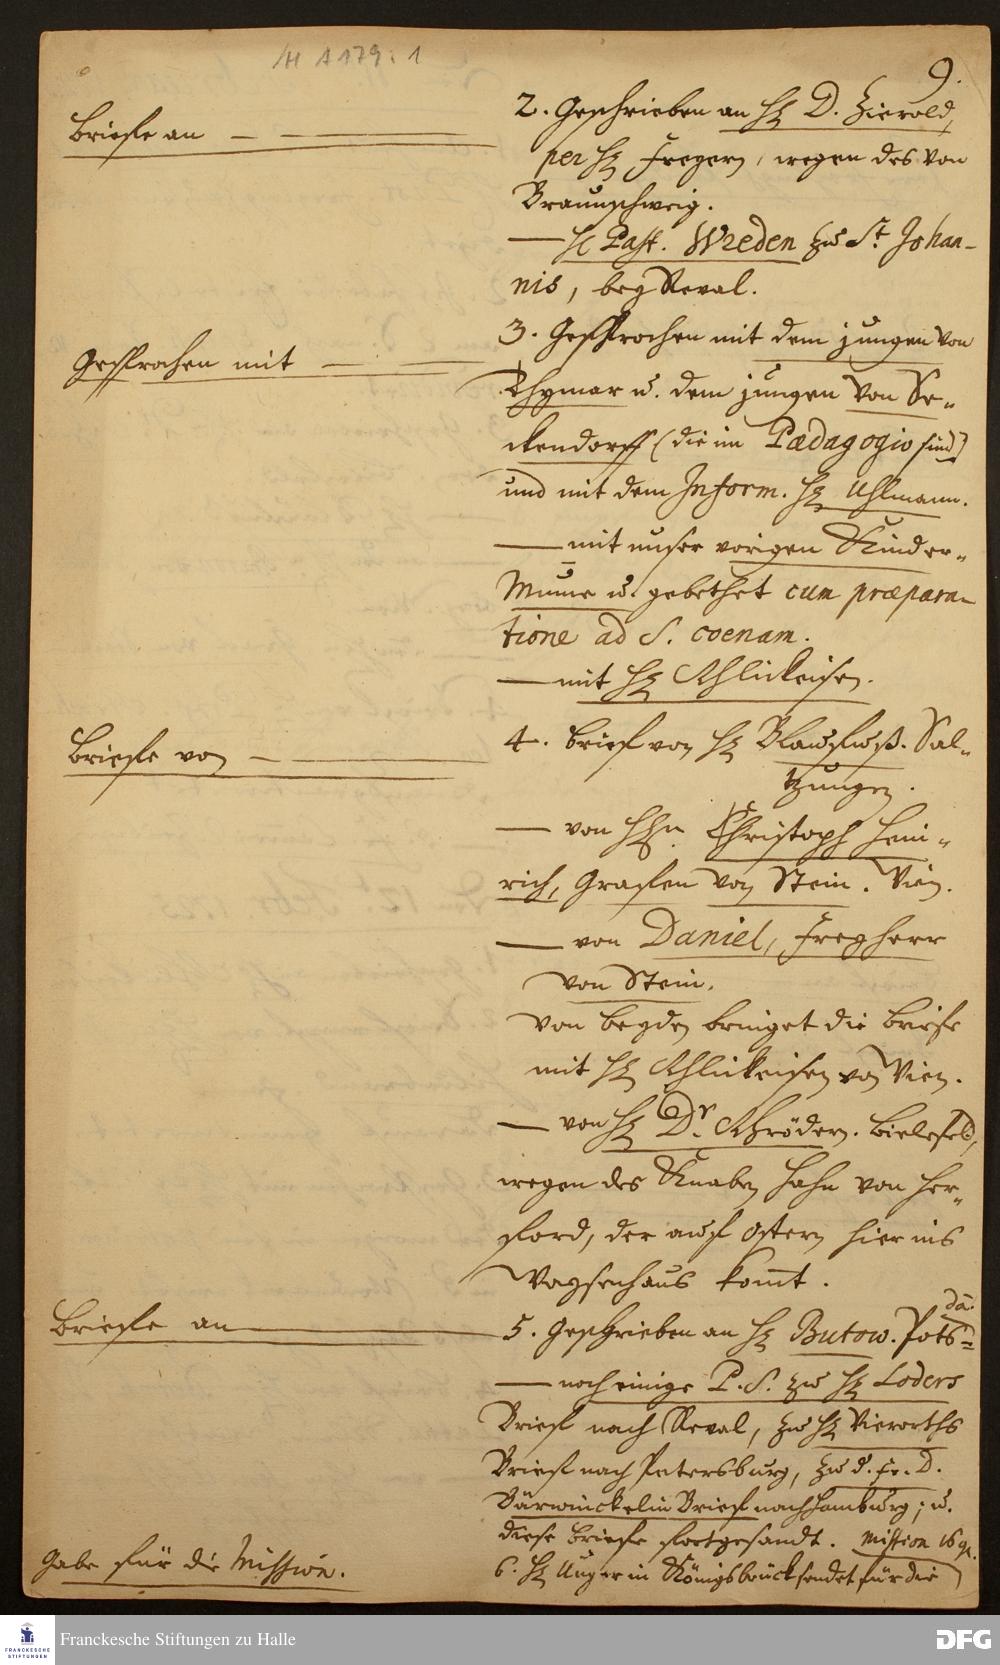 H A 179 : 1
9.
Briefe an
2. Geschrieben an H. D. Zierold,
per H. Fregern, wegen des von
Braunschweig.
— H. Past. Wreden zu St. Johan-
nis, bey Reval.
Gesprochen mit
3. Gesprochen mit dem jungen von
Thymar u. dem jungen von Se-
ckendorff (die im Pædagogio sind)
und mit dem Inform. H. Uhlmann.
— mit unser vorigen Kinder-
Mume u. gebethet cum præpara-
tione ad S. coenam.
— mit H. Schlickeisen.
Briefe von
4. Brief von H. Blaufuß. Sal-
tzungen.
— von HEn. Christoph Hein-
rich, Grafen von Stein. Wien.
— von Daniel, Freyherr
von Stein.
von beyden bringet die Briefe
mit H. Schlickeisen von Wien.
— von H. Dr. Schrödern. Bielefeld,
wegen des Knaben Hahn von Her-
ford, der auf Ostern hier ins
Waysenhaus komt.
Briefe an
5. Geschrieben an H. Butow. Pots-
da.
— noch einige P. S. zu H. Loders
Brief nach Reval, zu H. Vieroths
Brief nach Petersburg, zu d. Fr. D.
Bärwinckelin Brief nach Hamburg; u.
diese Briefe fortgesandt. Mission 16 gr.
Gabe für die Mission.
6. H. Unger in Königsbrück sendet für die
Franckesche Stiftungen zu Halle
FRANCKESCHE STIFTUNGEN
DFG